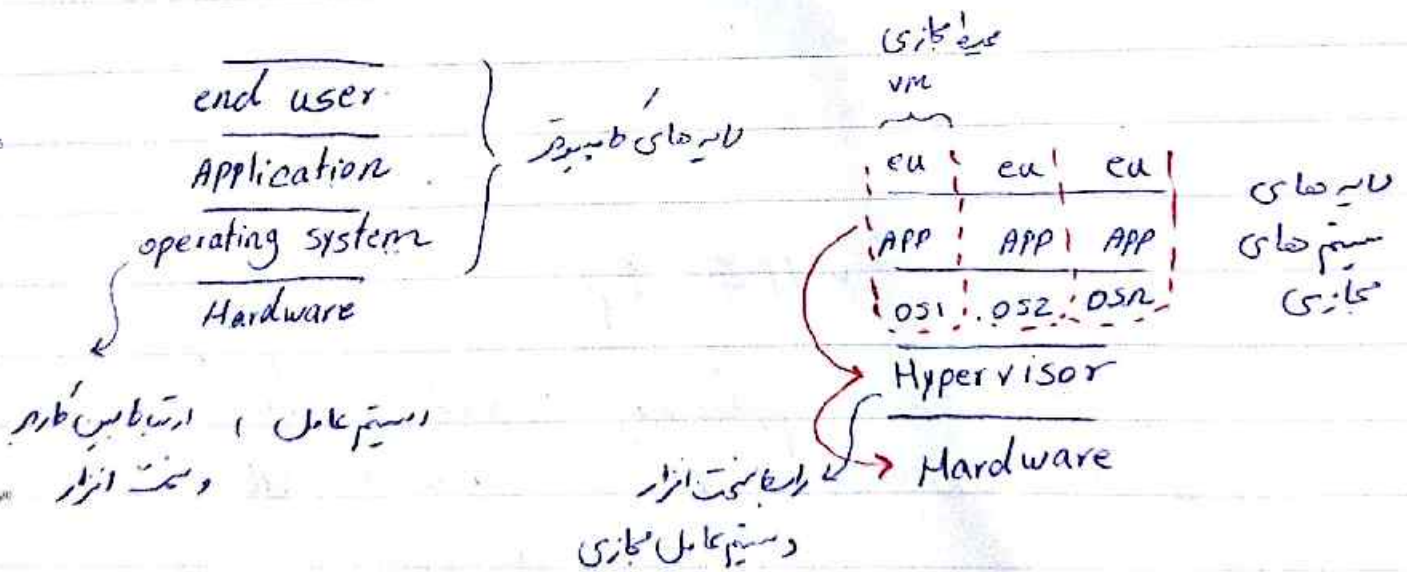 end user
Application
operating system
Hardware
لایه های کامپیوتر
سیستم عامل ، ارتباط بین کاربر
و سخت افزار
محیط مجازی
VM
eu eu eu
APP APP APP
OS1 OS2 OSn
Hypervisor
Hardware
لایه های
سیستم های
مجازی
رابط سخت افزار
و سیستم عامل مجازی